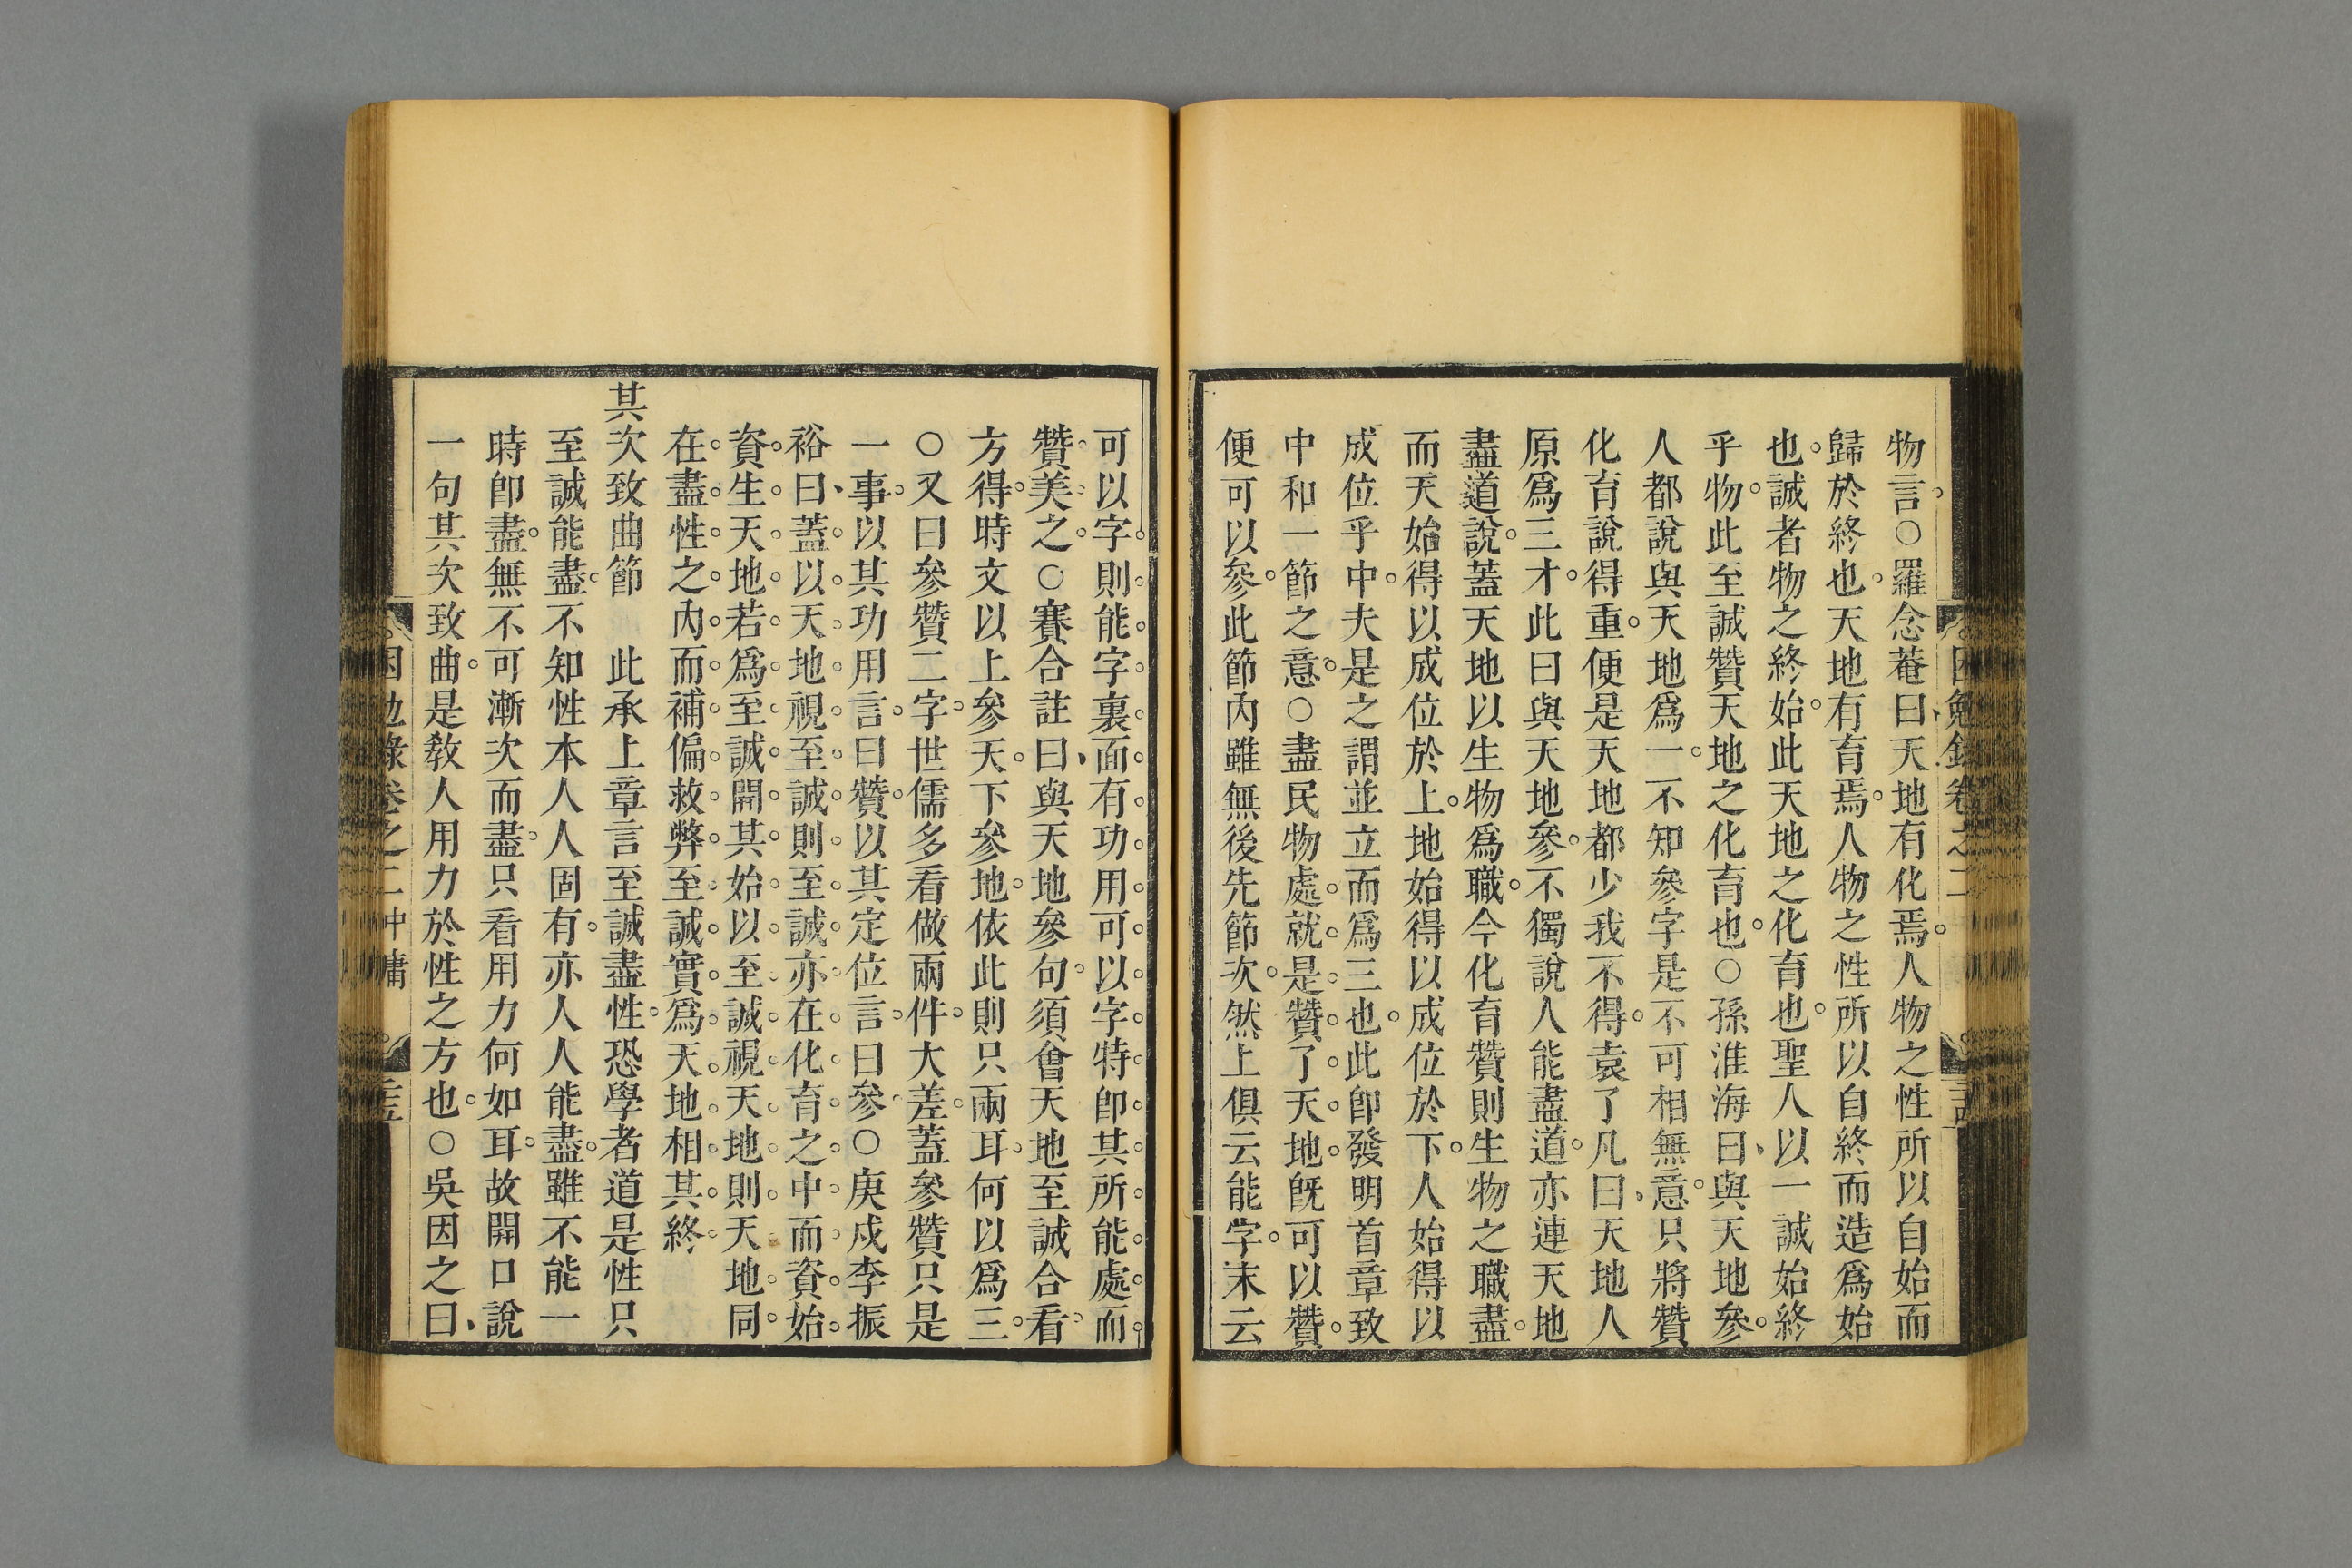 物言○羅念菴曰天地有化焉人物之性所以自始而
歸於終也天地有育焉人物之性所以自終而造爲始
也誠者物之終始此天地之化育也聖人以一誠始終
乎物此至誠贊天地之化育也○孫淮海曰與天地參
人都說與天地爲一不知參字是不可相無意只將贊
化育說得重便是天地都少我不得袁了凡曰天地人
原爲三才此曰與天地參不獨說人能盡道亦連天地
盡道說蓋天地以生物爲職今化育贊則生物之職盡
而天始得以成位於上地始得以成位於下人始得以
成位乎中夫是之謂並立而爲三也此卽發明首章致
中和一節之意○盡民物處就是贊了天地旣可以贊
便可以參此節內雖無後先節次然上俱云能字末云
可以字則能字裏面有功用可以字特卽其所能處而
贊美之○賽合註曰與天地參句須會天地至誠合看
方得時文以上參天下參地依此則只兩耳何以爲三
○又曰參贊二字世儒多看做兩件大差蓋參贊只是
一事以其功用言曰贊以其定位言曰參○庚戍李振
裕曰蓋以天地視至誠則至誠亦在化育之中而資始
資生天地若爲至誠開其始以至誠視天地則天地同
在盡性之內而補偏救弊至誠實爲天地相其終
其次致曲節　此承上章言至誠盡性恐學者道是性只
至誠能盡不知性本人人固有亦人人能盡雖不能一
時卽盡無不可漸次而盡只看用力何如耳故開口說
一句其次致曲是敎人用力於性之方也○吳因之曰
困勉錄卷之二 中庸